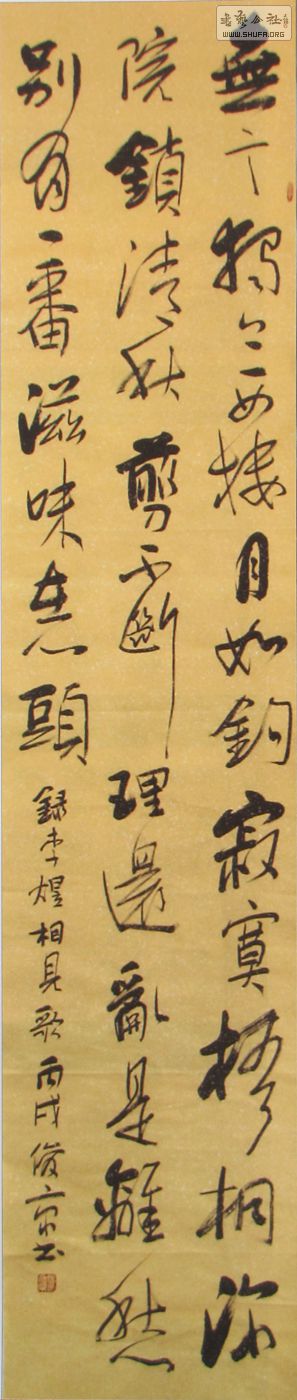 無言獨上西樓月如鉤寂寞梧桐深
院鎖清秋剪不斷理還亂是離愁
別有一番滋味在心頭
錄李煜相見歌丙戌俊京书
書藝公社
WWW.SHUFA.ORG